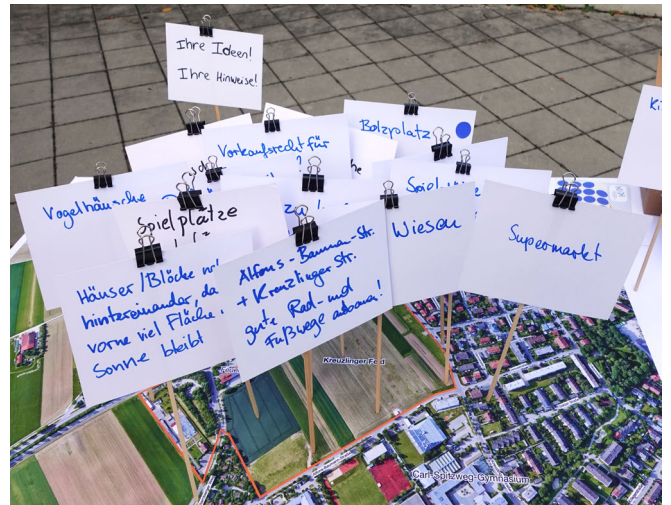 Ihre Ideen!
Ihre Hinweise!
Bolzplatz
Vorkaufsrecht für
?
Vogelhäusche
Spielplätze
Spiel
Wiesen
Supermarkt
Häuser/Blöcke
hintereinander, da
vorne viel Fläche
Sonne bleibt
Alfons-Bauman-Str.
+ Kreuzlinger Str.
gute Rad- und
Fußwege ausbauen!
Ki
Kreuzlinger Feld
Carl-Spitzweg-Gymnasium